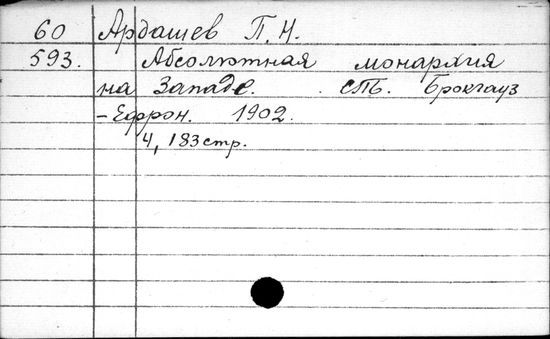 60 Ардашев П. Н.
593. Абсолютная монархия
на Западе. СПб. Брокгауз
- Ефрон. 1902.
4, 183 стр.